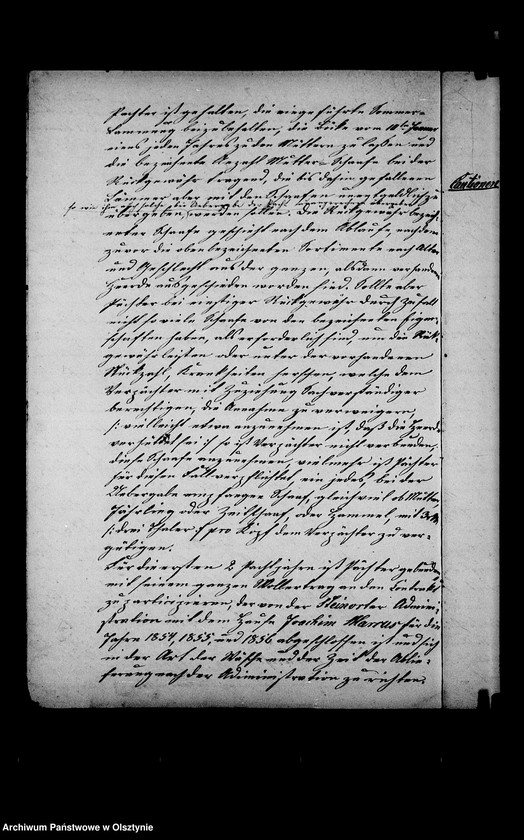 Pächter ist gehalten, die eingeführte Sommer-
Lammung beizubehalten, die Böcke vom 10ten Januar
eines jeden Jahres zu den Müttern zu laßen und
die bezeichnete Anzahl Mutter-Schaafe bei der
Rückgewähr tragend, die bis dahin gefallenen
Lämmer aber mit den Schaafen unentgeltlich zu
so wie ihm auch solche bei Uebergabe der Pacht
übergeben, werden sollen. Die Rückgewähr bezeich-
neter Schaafe geschieht nach dem Ablaufe, nachdem
zuvor die oben bezeichneten Sortimente nach Alter
und Geschlecht aus der ganzen, alsdann vorhandenen
Heerde ausgeschieden worden sind. Sollte aber
Pächter bei einstiger Rückgewähr durch Zufall
nicht so viele Schaafe von den bezeichneten Eigen-
schaften haben, als erforderlich sind, um die Rück-
gewähr leisten oder unter der vorhandenen
Stückzahl, Krankheiten herschen, welche dem
Verpächter mit Zuziehung Sachverständiger
berechtigen, die Annahme zu verweigern,
/: vielleicht etwa anzunehmen ist, daß die Heerde
verseucht sei :/ so ist Verpächter nicht verbunden,
diese Schaafe anzunehmen, vielmehr ist Pächter
für diesen Fall verpflichtet, ein jedes, bei der
Uebergabe empfangene Schaaf, gleichviel ob Mutter,
Jährling oder Zeitschaaf, oder Hammel, mit 3 rtl
/: drei Thaler :/ pro Kopf dem Verpächter zu ver-
gütigen.
Für die ersten 2 Pachtjahre ist Pächter gebunden
mit seinem ganzen Wollertrag an dem Contrakt
zu participiren, der von der Steinorter Admini-
stration mit dem Hause Joachim Marcus für die
Jahre 1854, 1855, und 1856 abgeschlossen ist und sich
in der Art der Wäsche und der Zeit der Ablie-
ferung nach der Administration zu richten.
Cautionen
Archiwum Państwowe w Olsztynie